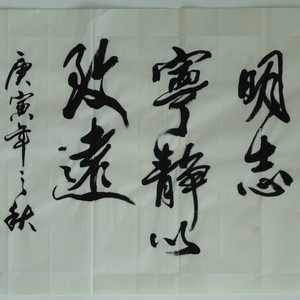 明志
寧靜以
致遠
庚寅年之秋